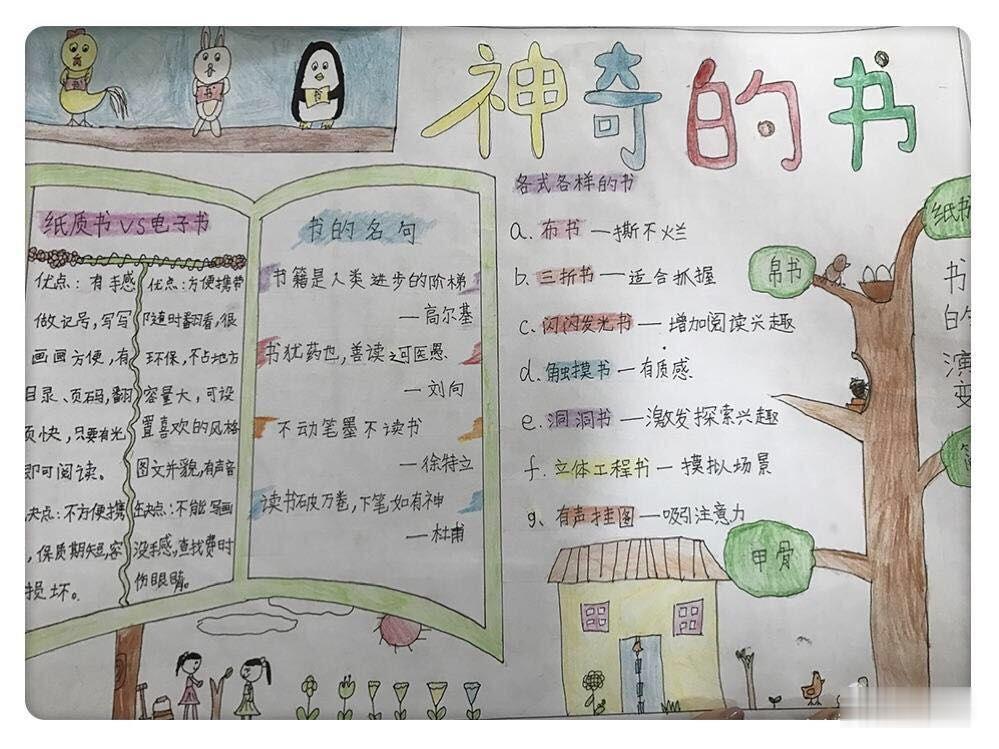 神奇的书
爱
书
各
书
书
纸质书VS电子书
优点：有手感
做记号，写写
画画方便，有
目录、页码，翻
页快，只要有光
即可阅读。
缺点：不方便携
，保质期短，容
损坏。
优点：方便携带
随时翻看，很
环保，不占地方
容量大，可设
置喜欢的风格
图文并貌，有声音
缺点：不能写画
没手感，查找费时
伤眼睛。
书的名句
书籍是人类进步的阶梯
—高尔基
书犹药也，善读之可医愚
—刘向
不动笔墨不读书
—徐特立
读书破万卷，下笔如有神
—杜甫
各式各样的书
a. 布书—撕不烂
b. 三折书—适合抓握
c. 闪闪发光书—增加阅读兴趣
d. 触摸书—有质感
e. 洞洞书—激发探索兴趣
f. 立体工程书—摸拟场景
g、有声挂图—吸引注意力
书的演变
纸书
帛书
甲骨